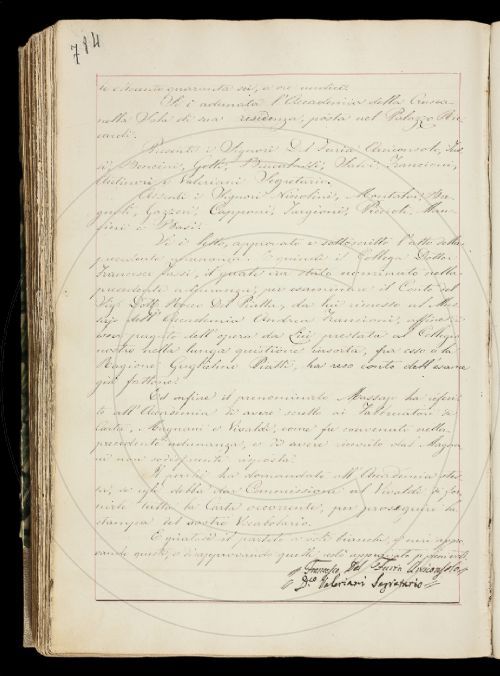 784
to cinquanta quaranta sei, a ore undici.
Si è adunata l'Accademia della Crusca
nella Sala di sua residenza, posta nel Palazzo Ric
cardi.
Presenti i Signori Del Furia Arciconsolo,
Bencini, Gotti, Franciosi,
e Valeriani Segretario.
Assenti i Signori Niccolini, Montalvi,
Gazzeri, Capponi, Targioni,
e Basi.
Si è letto, approvato e sottoscritto l'atto della
precedente adunanza. E quindi il Collega Dott.
Francesco Tassi, il quale era stato nominato nella
precedente adunanza, per esaminare il Conto del
Sig. Dott. Marco Del Piatta, da lui rimesso al Mas
sajo dell'Accademia Andrea Francioni, affine
esser pagato dell'opera da Lui prestata al Collegio
nostro nella lunga questione insorta, fra esso e la
Ragione Guglielmo Piatti, ha reso conto dell'esame
già fattone.
Ed infine il prenominato Massajo ha referi
to all'Accademia di avere scritto ai Fabbricatori di
Carta, Magnani e Vivaldi, come fu convenuto nella
precedente adunanza, e di avere ricevuto dal Magna
ni non sodisfacente risposta.
E perciò ha domandato all'Accademia stes
sa, se egli debba dar Commissione al Vivaldi di for
nirle tutta la Carta occorrente, per proseguire la
stampa del nostro Vocabolario.
E giratosi il partito a voti bianchi e neri appro
vando questi, e disapprovando quelli, restò approvato a pieni voti.
Francesco Del Furia Arciconsolo
D.co Valeriani Segretario